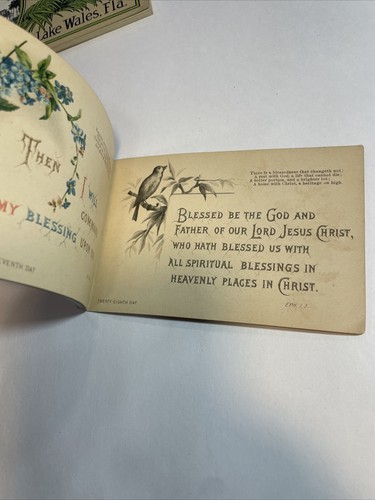 Lake Wales, Fla.
Then
I will
command
my blessing upon
seventh day
There is a blessedness that changeth not
A rest with God, a life that cannot die;
A better portion, and a brighter lot;
A home with Christ, a heritage on high.
Blessed be the God and
Father of our Lord Jesus Christ,
who hath blessed us with
all spiritual blessings in
heavenly places in Christ.
Eph. 1.3
Twenty Eighth Day